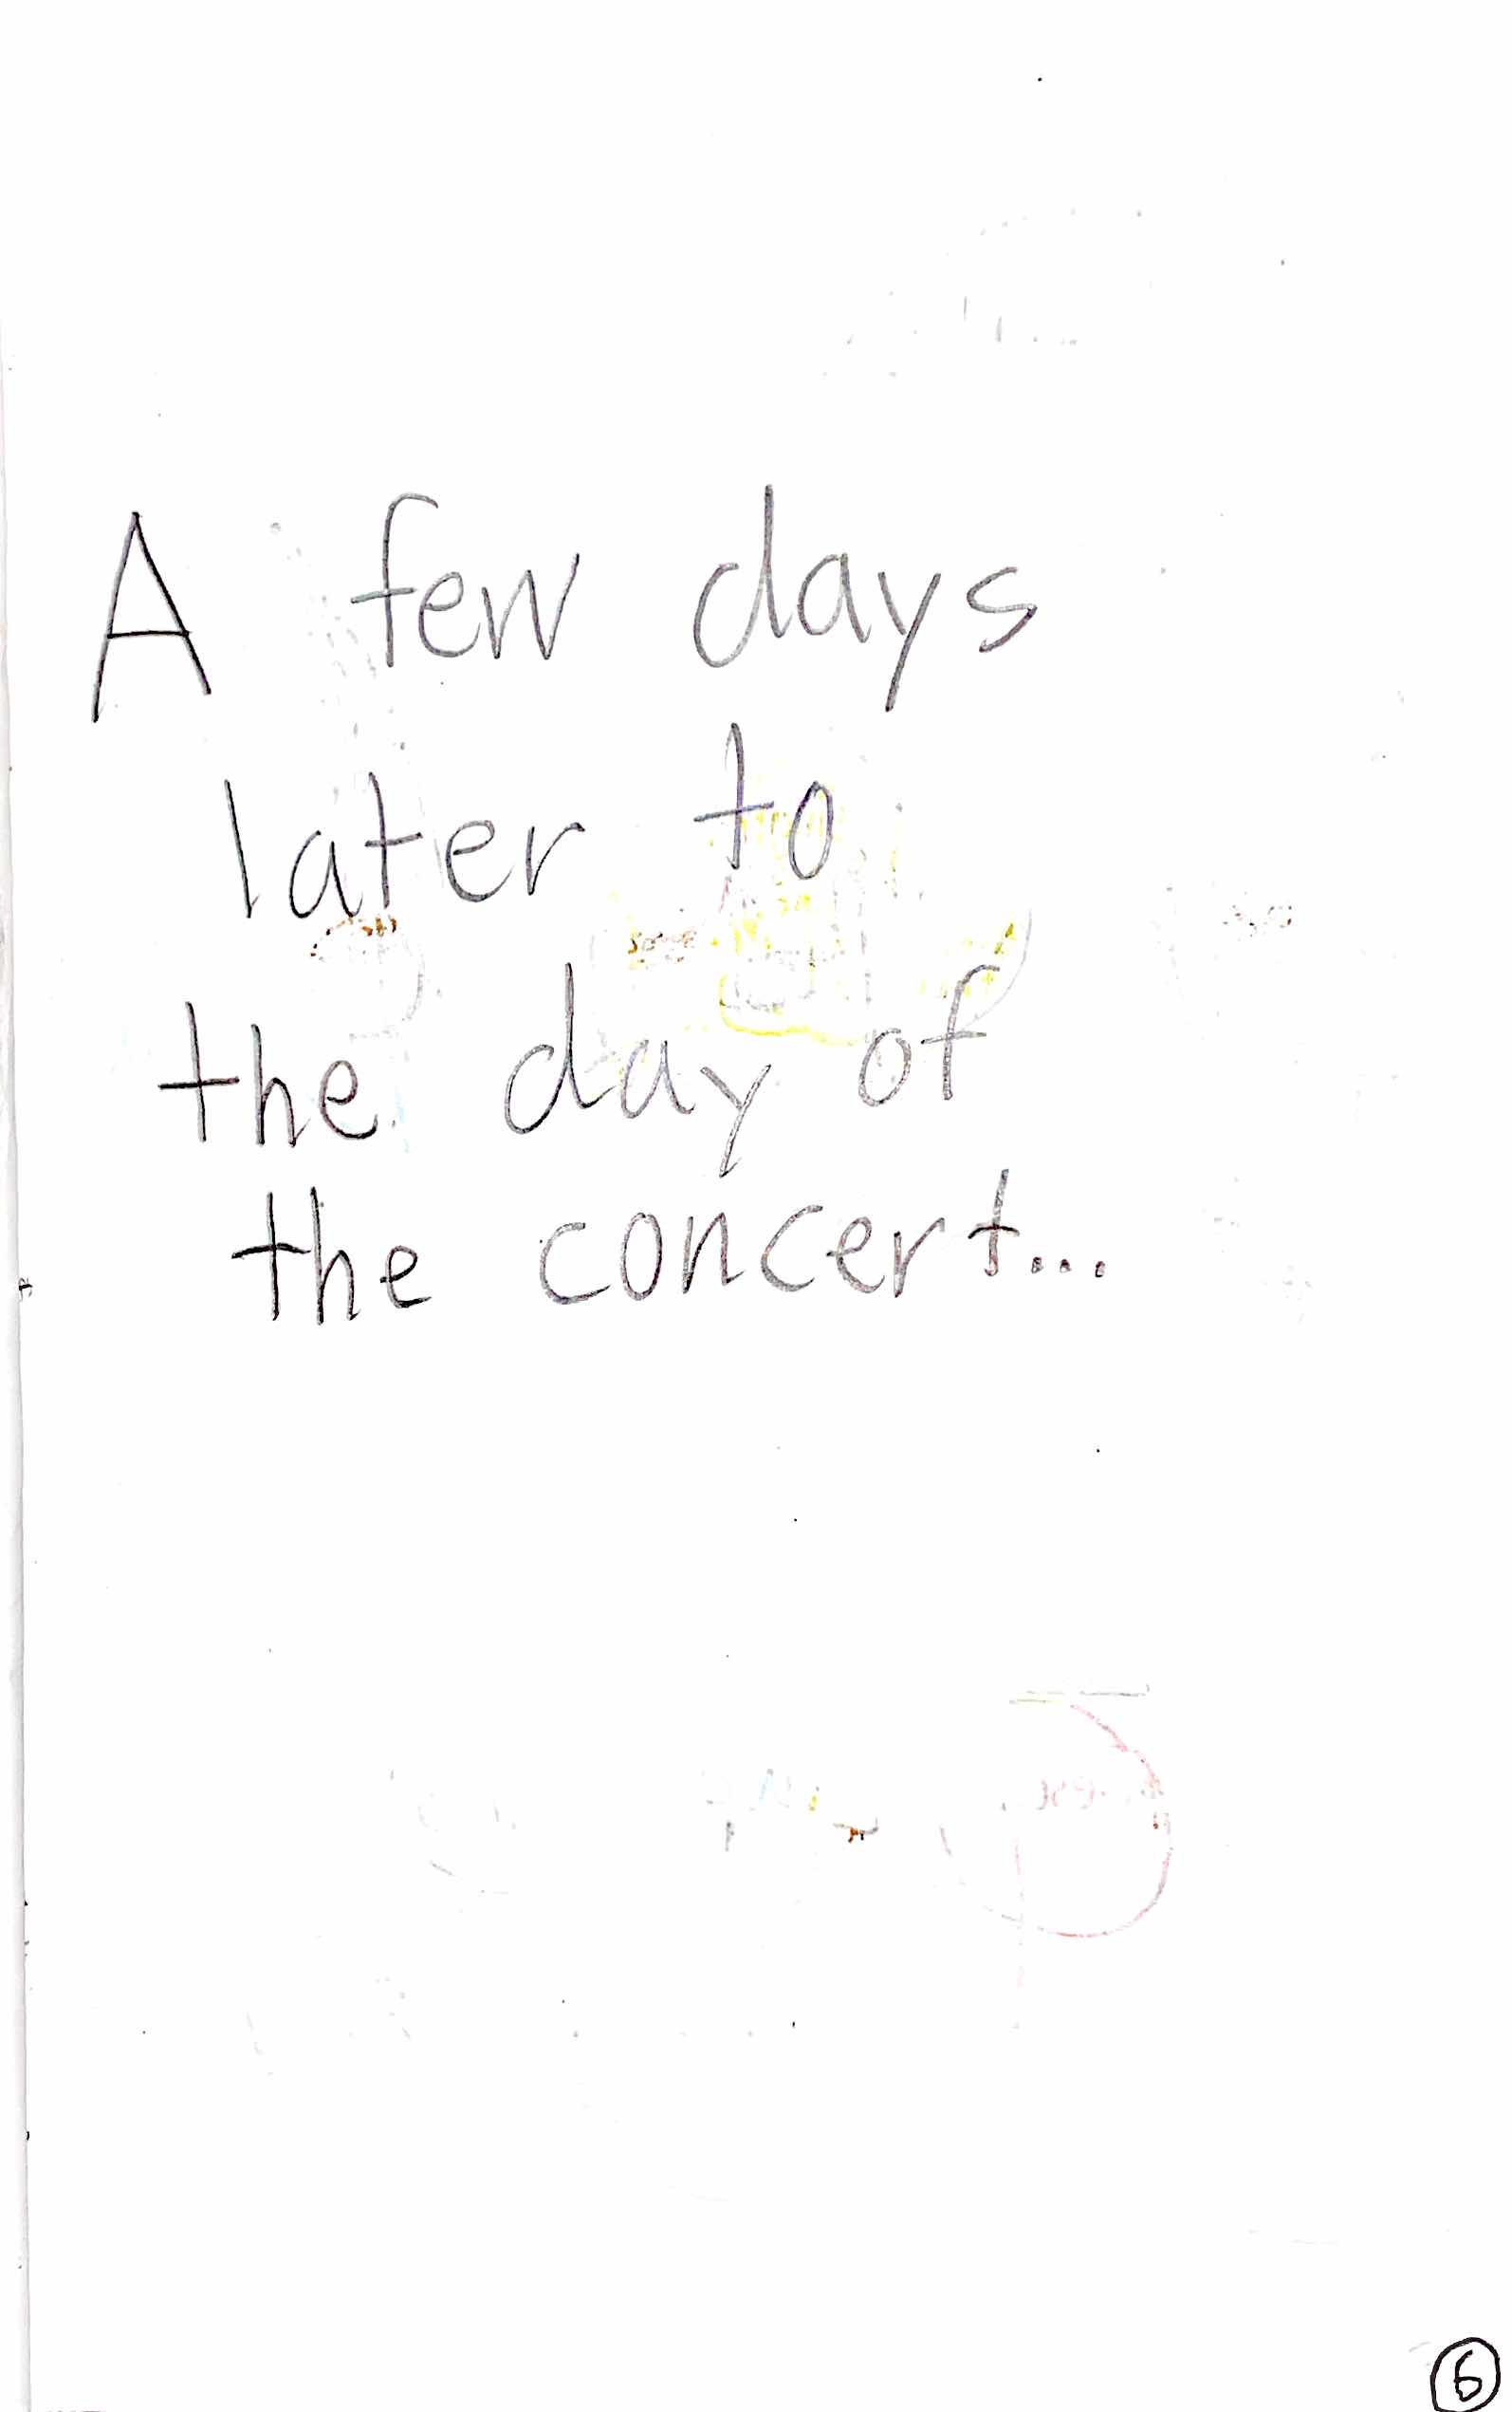 A few days
later to
the day of
the concert...
6